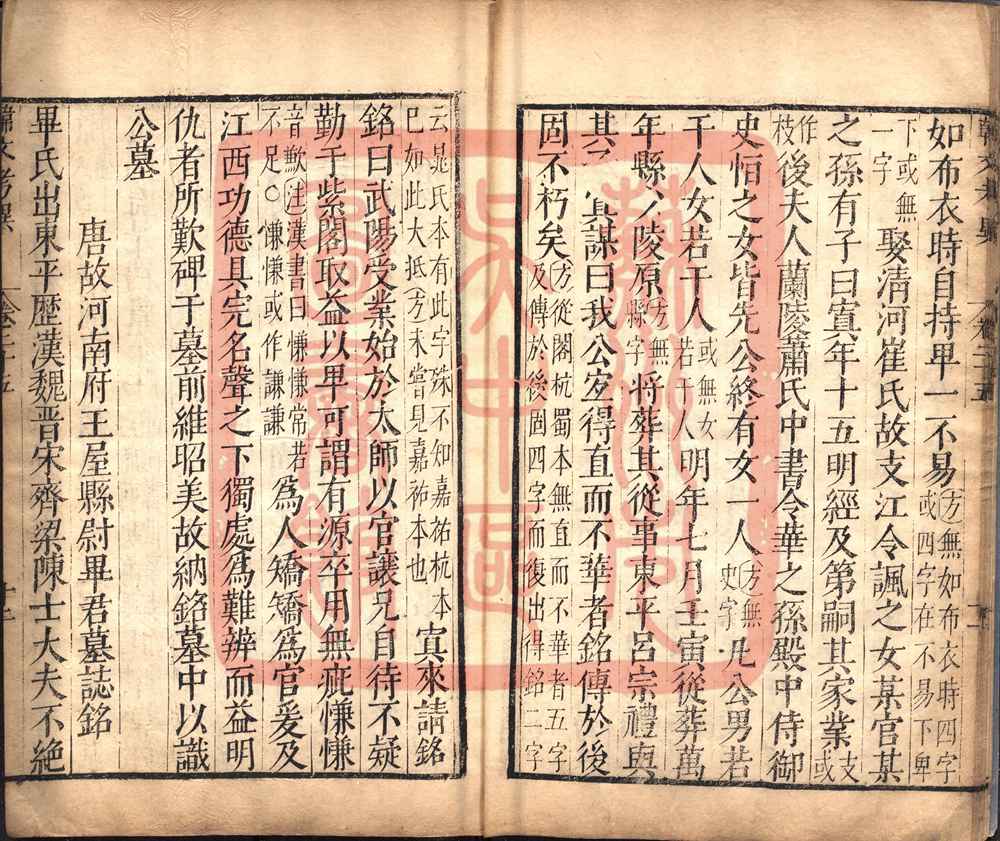 如布衣時自持卑一不易方無如布衣時四字或四字在不易下卑
下或無一字娶清河崔氏故支江令諷之女某官某
之孫有子曰寘年十五明經及第嗣其家業支或
作枝後夫人蘭陵蕭氏中書令華之孫殿中侍御
史恒之女皆先公終有女一人方無史字凡公男若
干人女若干人或無女若干人明年七月壬寅從葬萬
年縣少陵原方無縣字將葬其從事東平呂宗禮與
其子寘謀曰我公宜得直而不華者銘傳於後
固不朽矣方從閣杭蜀本無直而不華者五字及傳於後固四字而復出得銘二字
云晁氏本有此字殊不知嘉祐杭本已如此大抵方未嘗見嘉祐本也寘來請銘
銘曰武陽受業始於太師以官讓兄自待不疑
勤于紫閣取益以卑可謂有源卒用無疵慊慊
音歉注漢書曰慊慊常若不足○慊慊或作謙謙為人矯矯為官爰及
江西功德具完名聲之下獨處為難辨而益明
仇者所歎碑于墓前維昭美故納銘墓中以識
公墓
唐故河南府王屋縣尉畢君墓誌銘
畢氏出東平歷漢魏晉宋齊梁陳士大夫不絕